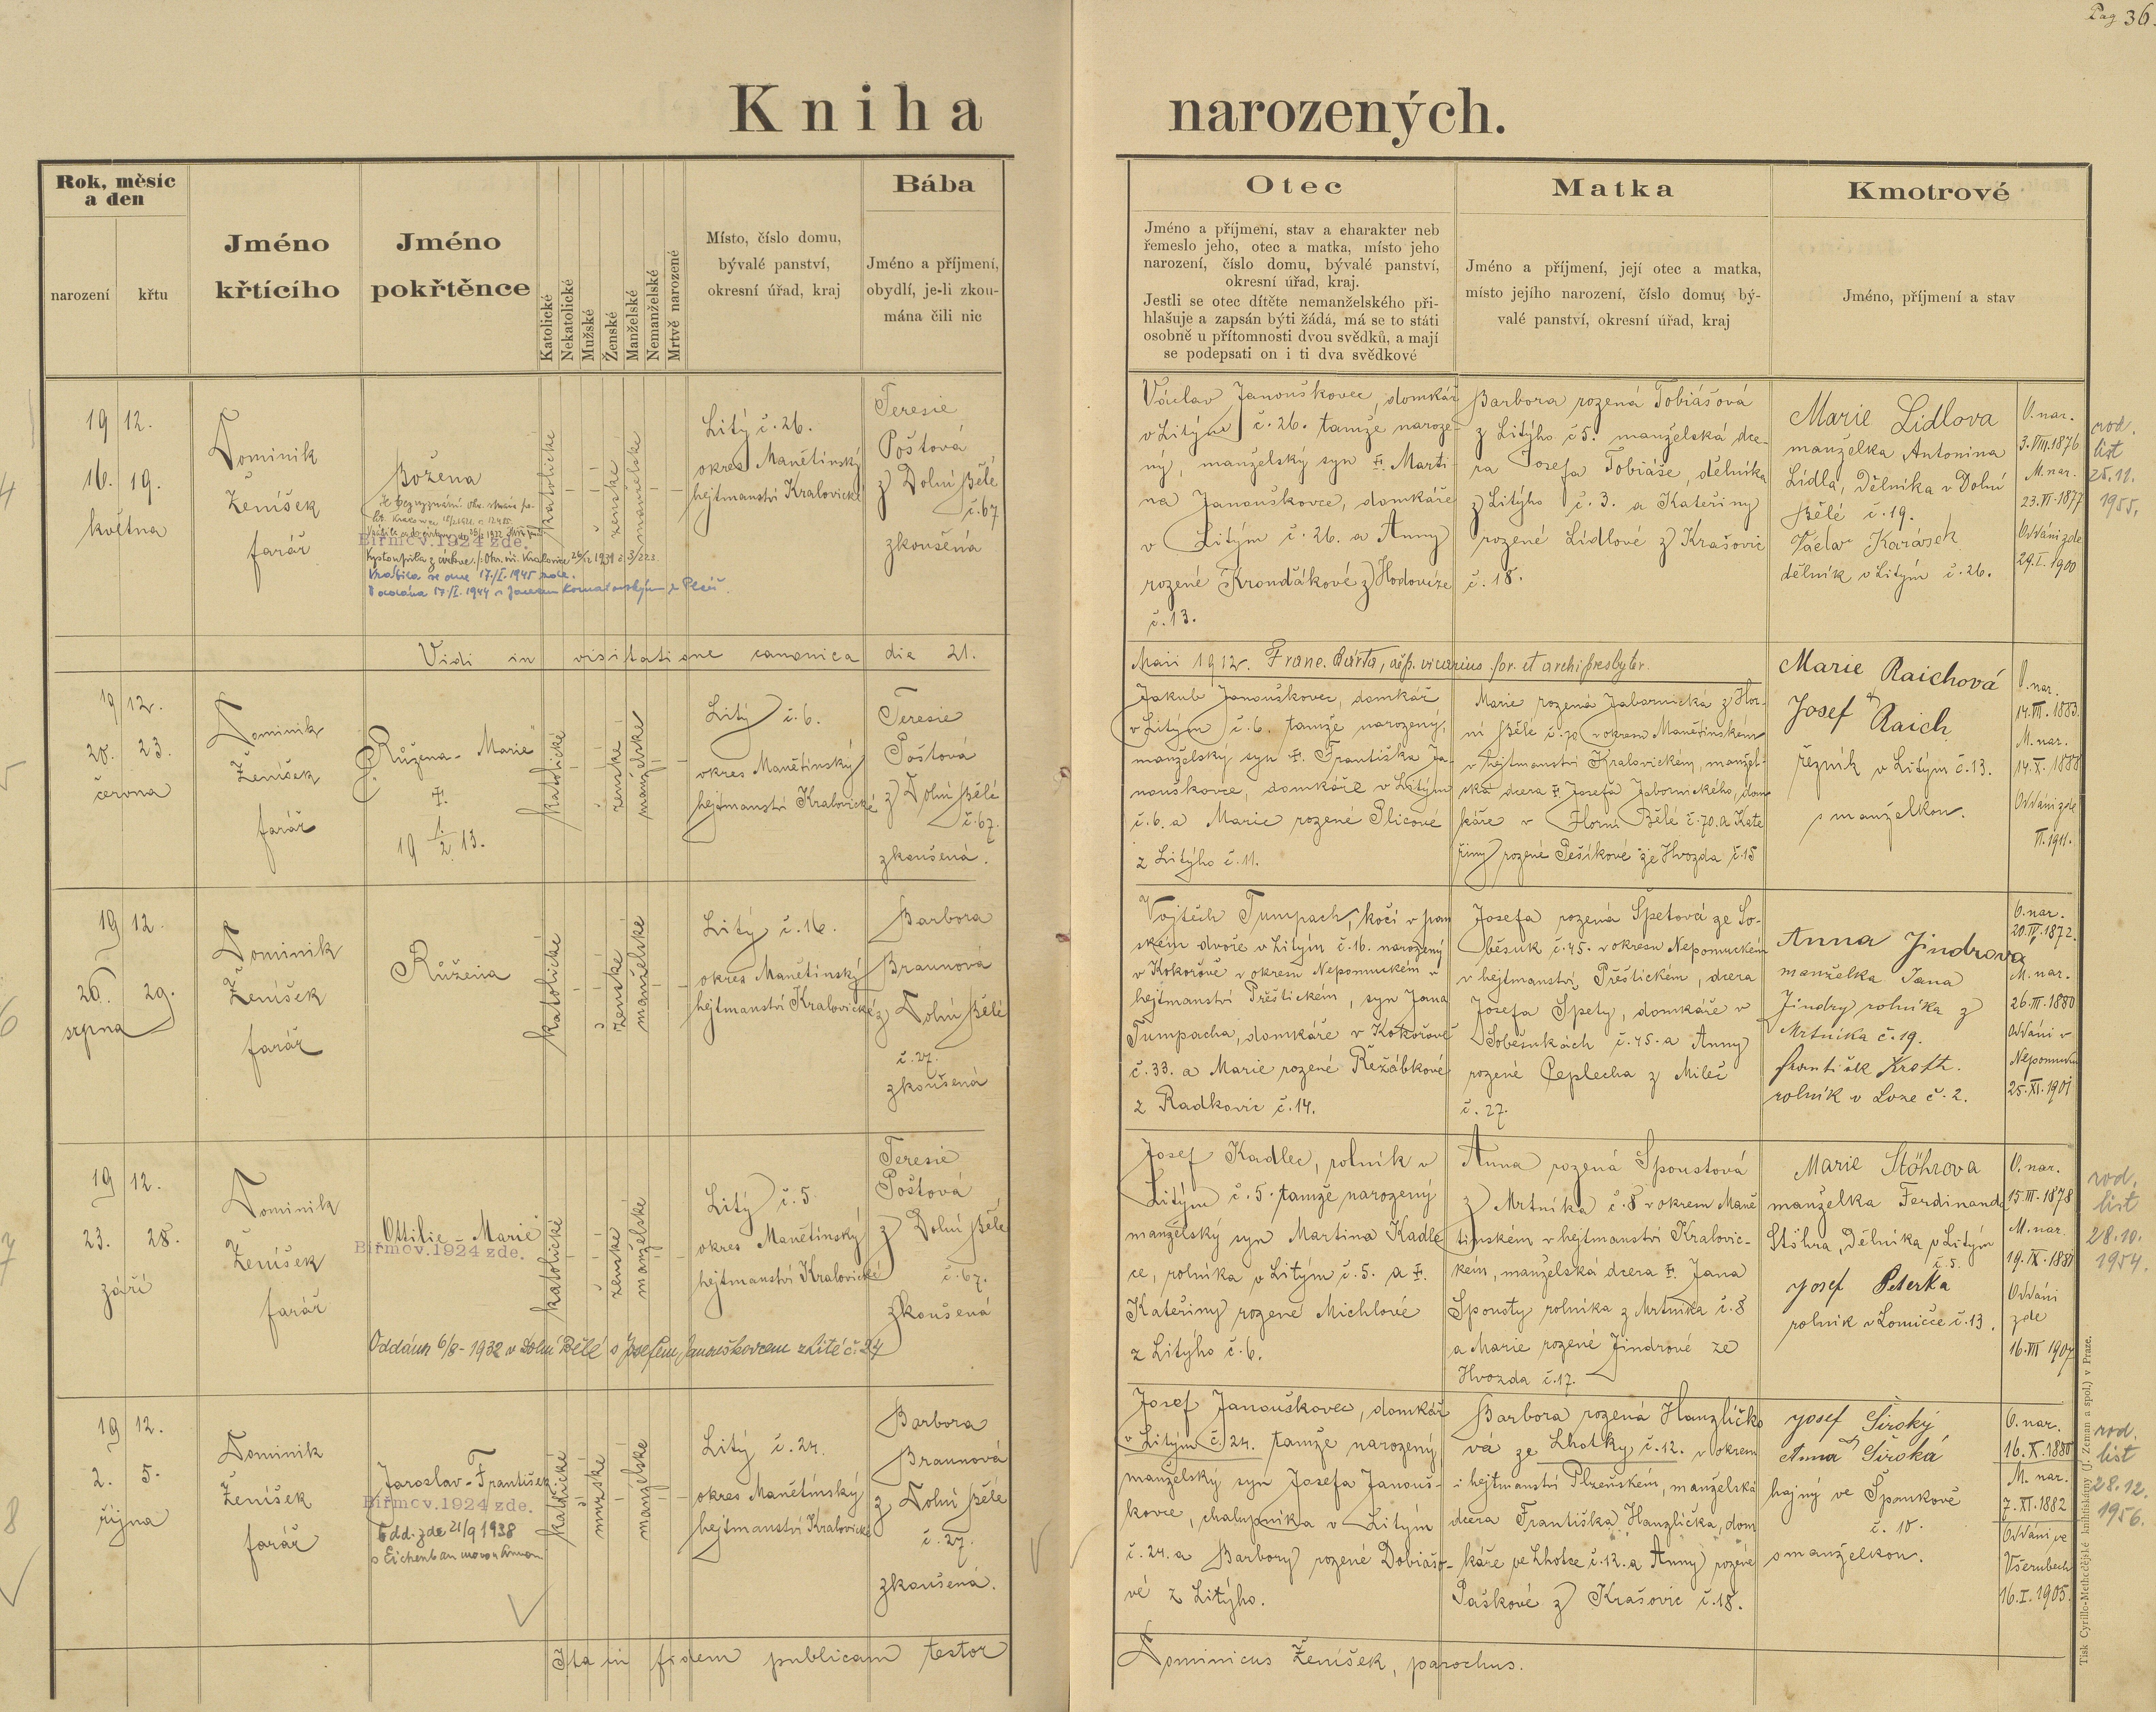 Pag 36.
Kniha narozených.
Rok, měsíc
a den
narození
křtu
Jméno
křtícího
Jméno
pokřtěnce
Katolické
Nekatolické
Mužské
Ženské
Manželské
Nemanželské
Mrtvě narozené
Místo, číslo domu,
bývalé panství,
okresní úřad, kraj
Bába
Jméno a příjmení,
obydlí, je-li zkou-
mána čili nic
Otec
Jméno a příjmení, stav a charakter neb
řemeslo jeho, otec a matka, místo jeho
narození, číslo domu, bývalé panství,
okresní úřad, kraj.
Jestli se otec dítěte nemanželského při-
hlašuje a zapsán býti žádá, má se to státi
osobně u přítomnosti dvou svědků, a mají
se podepsati on i ti dva svědkové
Matka
Jméno a příjmení, její otec a matka,
místo jejího narození, číslo domu, bý-
valé panství, okresní úřad, kraj
Kmotrové
Jméno, příjmení a stav
4
19 12.
16. 19.
května
Dominik
Ženíšek
farář
Božena
Biřmov. 1924 zde.
Vrátila se dne 17./I. 1945 zde.
katolické
ženské
manželské
Litý č. 26.
okres Manětínský
hejtmanství Kralovické
Teresie
Poštová
z Dolní Bělé
č. 67
zkoušená
Václav Janouškovec, domkář
v Litým č. 26. tamže naroze-
ný, manželský syn †. Marti-
na Janouškovce, domkáře
v Litým č. 26. a Anny
rozené Krondákové z Hodovize
č. 13.
Barbora rozená Tobiášová
z Litýho č 5. manželská dce-
ra Josefa Tobiáše, dělníka
z Litýho č. 3. a Kateřiny
rozené Lidlové z Krašovic
č. 18.
Marie Lidlova
manželka Antonina
Lidla, dělníka v Dolní
Bělé č. 19.
Václav Karásek
dělník v Litým č. 26.
O. nar.
3.VIII.1876
M. nar.
23.VI.1877
Oddáni zde
29.I.1900
rod.
list
25.11.
1955.
Vidi in visitatione canonica die 21.
Maii 1912. Franc. Bárta, vicarius for. et archipresbyter.
5
19 12.
20. 23.
června
Dominik
Ženíšek
farář
"Růžena - Marie"
†.
19 1/2 13.
katolické
ženské
manželské
Litý č. 6.
okres Manětínský
hejtmanství Kralovické
Teresie
Poštová
z Dolní Bělé
č. 67.
zkoušená.
Jakub Janouškovec, domkář
v Litým č. 6. tamže narozený,
manželský syn †. Františka Ja-
nouškovce, domkáře v Litým
č. 6. a Marie rozené Plicové
z Litýho č. 11.
Marie rozená Jabornická z Hor-
ní Bělé č. 70 v okresu Manětínském
v hejtmanství Kralovickém, manžel-
ská dcera †. Josefa Jabornického, dom
káře v Horní Bělé č. 70. a Kate
řiny rozené Pešíkové ze Hvozda č. 15
Marie Raichová
Josef Raich
řezník v Litým č. 13.
s manželkou.
O. nar.
14.III.1883.
M. nar.
14.X.1888
Oddáni zde
VI.1911.
6
19 12.
26. 29.
srpna
Dominik
Ženíšek
farář
Růžena
katolické
ženské
manželské
Litý č. 16.
okres Manětínský
hejtmanství Kralovické
Barbora
Braunová
z Dolní Bělé
č. 27.
zkoušená
Vojtěch Tumpach, kočí v pan
ském dvoře v Litým č. 16. narozený
v Kokořově v okresu Nepomuckém v
hejtmanství Přeštickém, syn Jana
Tumpacha, domkáře v Kokořově
č. 33. a Marie rozené Řežábkové
z Radkovic č. 14.
Josefa rozená Spetová ze So-
běsuk č. 45. v okresu Nepomuckém
v hejtmanství Přeštickém, dcera
Josefa Spety, domkáře v
Soběsukách č. 45. a Anny
rozené Ceplecha z Mileč
č. 27.
Anna Jindrova
manželka Jana
Jindry rolníka z
Mrtníka č. 19.
František Kroft.
rolník v Loze č. 2.
O. nar.
20.IV.1872.
M. nar.
26.III.1880
Oddáni v
Nepomuku
25.XI.1901
7
19 12.
23. 28.
září
Dominik
Ženíšek
farář
"Ottilie - Marie"
Biřmov. 1924 zde.
Oddána 6/8 - 1932 v Dolní Bělé s Josefem Janouškovcem z Lité č. 24
katolické
ženské
manželské
Litý č. 5
okres Manětínský
hejtmanství Kralovické
Teresie
Poštová
z Dolní Bělé
č. 67.
zkoušená
Josef Kadlec, rolník v
Litým č. 5. tamže narozený
manželský syn Martina Kadle
ce, rolníka v Litým č. 5. a †.
Kateřiny rozené Michlové
z Litýho č. 6.
Anna rozená Spoustová
z Mrtníka č. 8 v okresu Maně
tínském v hejtmanství Kralovic-
kém, manželská dcera †. Jana
Spousty rolníka z Mrtníka č. 8
a Marie rozené Jindrové ze
Hvozda č. 17.
Marie Stöhrova
manželka Ferdinanda
Stöhra, dělníka v Litým
č. 5.
Josef Peterka
rolník v Lomičce č. 13.
O. nar.
15.III.1878
M. nar.
19.IX.1881
Oddáni
zde
16.VII 1907
rod.
list
28.10.
1954.
8
19 12.
2. 5.
října
Dominik
Ženíšek
farář
Jaroslav - František
Biřmov. 1924 zde.
Odd. zde 21/9 1938
katolické
mužské
manželské
Litý č. 24.
okres Manětínský
hejtmanství Kralovické
Barbora
Braunová
z Dolní Bělé
č. 27.
zkoušená.
Josef Janouškovec, domkář
v Litým č. 24. tamže narozený,
manželský syn Josefa Janouš-
kovce, chalupníka v Litým
č. 24. a Barbory rozené Dobiášo-
vé z Litýho.
Barbora rozená Hanzlíčko
vá ze Lhotky č. 12. v okresu
i hejtmanství Plzeňském, manželská
dcera Františka Hanzlíčka, dom
káře ve Lhotce č. 12. a Anny rozené
Paškové z Krašovic č. 18.
Josef Široký
Anna Široká
hajný ve Špankově
č. 10.
s manželkou.
O. nar.
16.X.1880
M. nar.
7.XI.1882
Oddáni ve
Všerubech
16.I.1905.
rod.
list
28.12.
1956.
Ita in fidem publicam testor
Dominicus Ženíšek, parochus.
Tisk Cyrillo-Methodějské knihtiskárny (J. Zeman a spol.) v Praze.